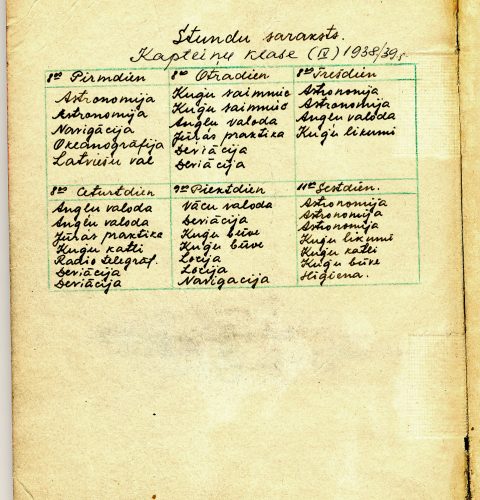 Stundu saraksts.
Kapteiņu klase (IV) 1938/39g
8ºº Pirmdien
Astronomija
Astronomija
Navigācija
Okeanogrāfija
Latviešu val
8ºº Otradien
Kuģu saimniec
Kuģu saimniec
Angļu valoda
Jūras praktika
Deviācija
Deviācija
8ºº Trešdien
Astronomija
Astronomija
Angļu valoda
Kuģu likumi
8ºº Ceturtdien
Angļu valoda
Angļu valoda
Jūras praktika
Kuģu katli
Radio telegraf.
Deviācija
Deviācija
9ºº Piektdien
Vācu valoda
Deviācija
Kuģu būve
Kuģu būve
Locija
Locija
Navigacija
11ºº Sestdien.
Astronomija
Astronomija
Astronomija
Kuģu likumi
Kuģu katli
Kuģu būve
Higiena.